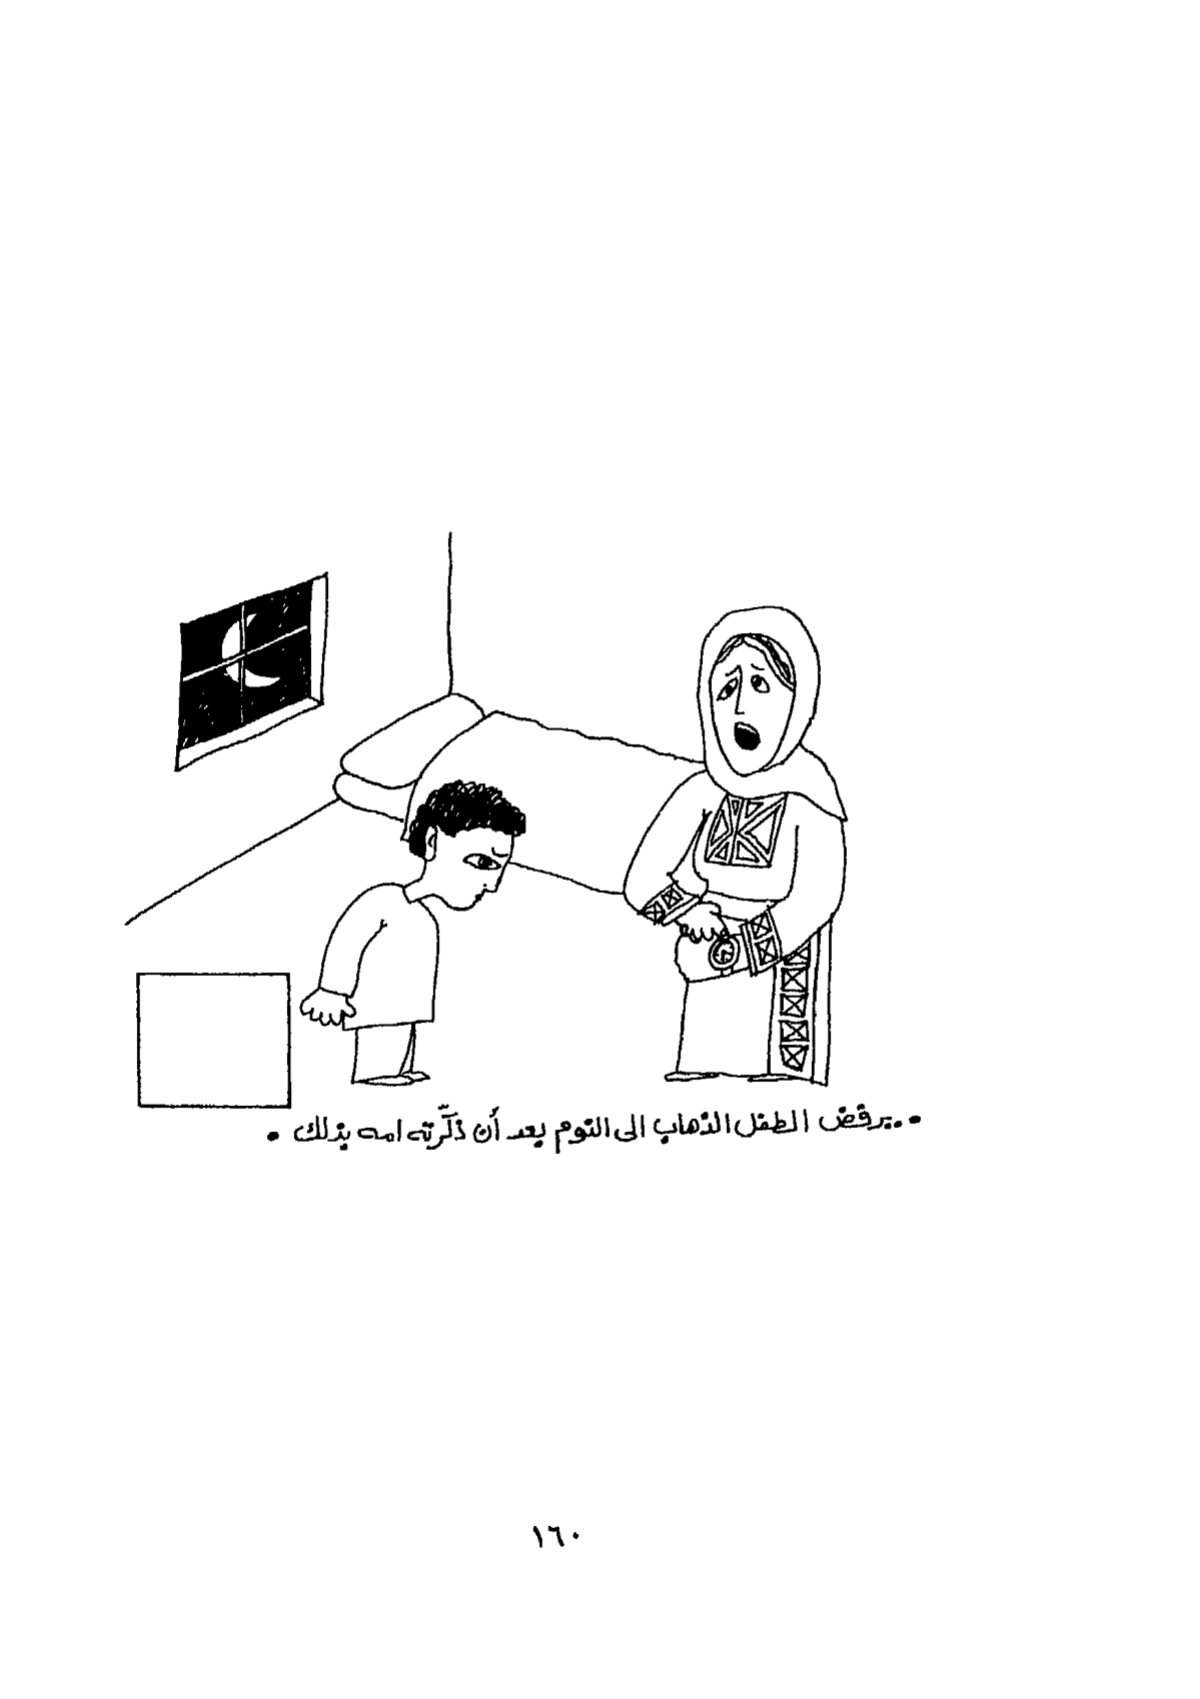 ..يرفض الطفل الذهاب الى النوم بعد أن ذكّرته امه بذلك .
١٦٠